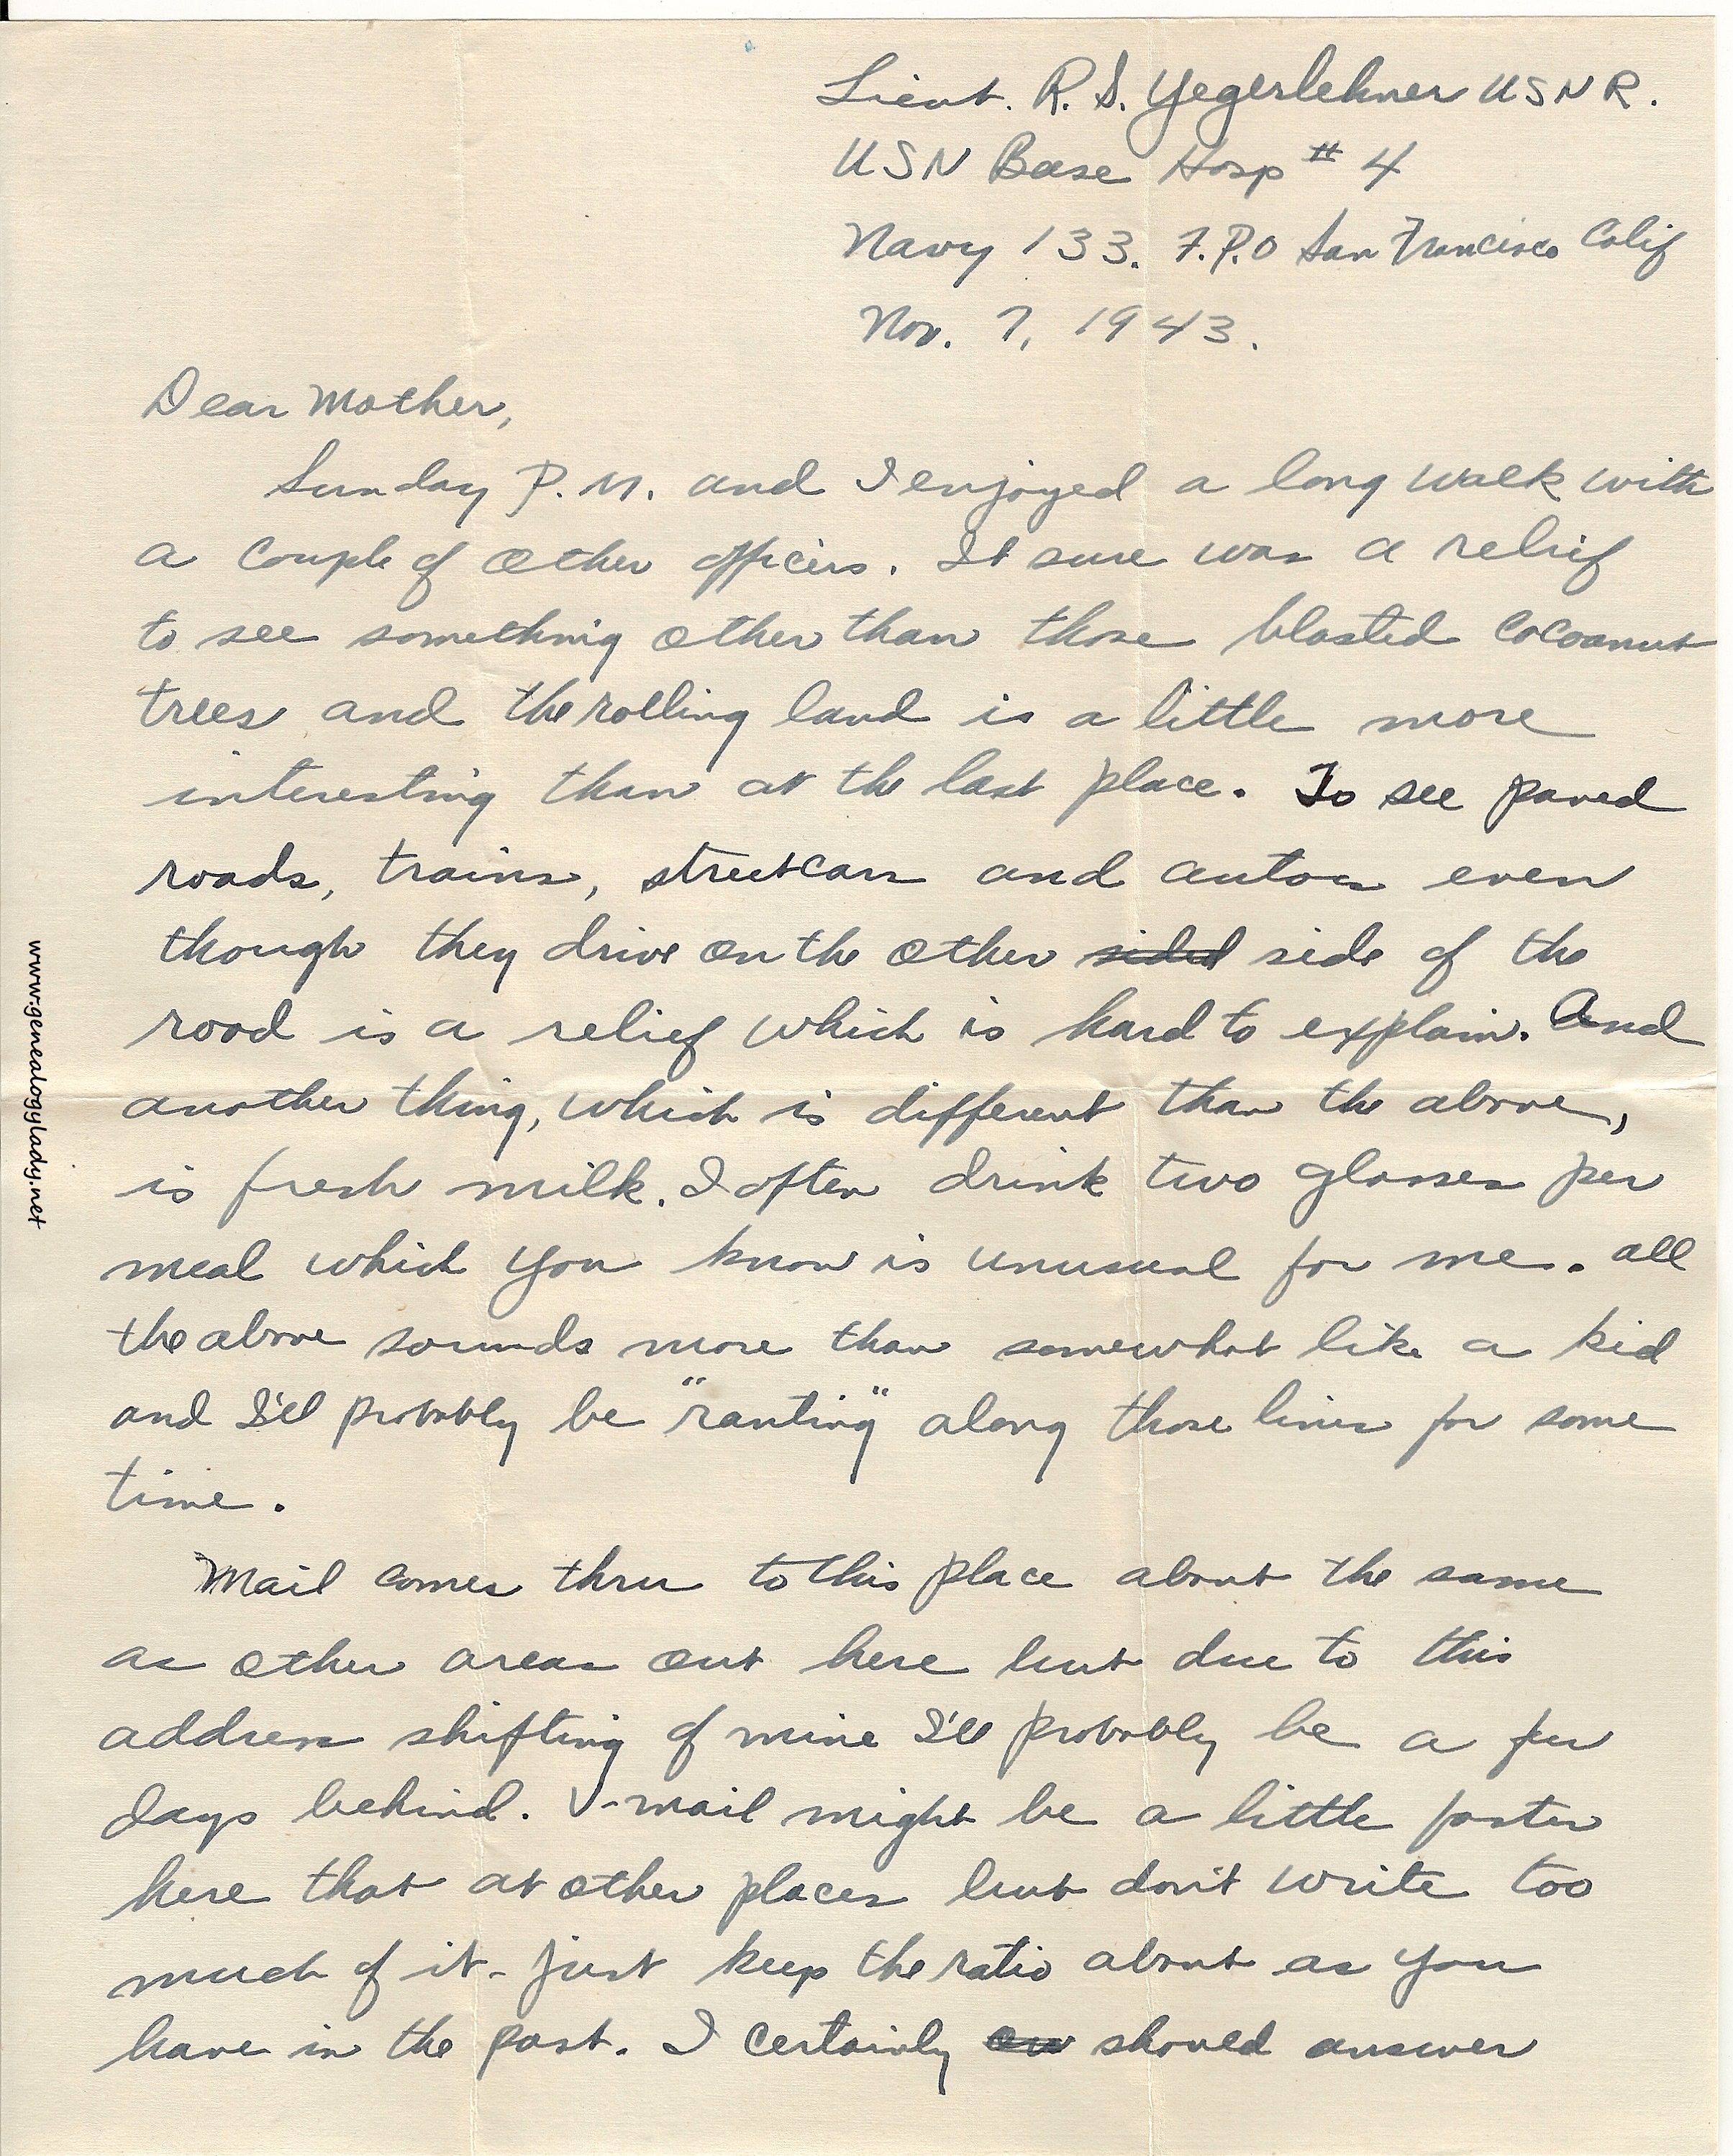 Lieut. R. S. Yegerlehner USNR.
USN Base Hosp # 4
Navy 133. F.P.O San Francisco Calif
Nov. 7, 1943.
Dear Mother,
Sunday P.M. and I enjoyed a long walk with
a couple of other officers. It sure was a relief
to see something other than those blasted cocoanut
trees and the rolling land is a little more
interesting than at the last place. To see paved
roads, trains, streetcars and autos even
though they drive on the other sided side of the
road is a relief which is hard to explain. And
another thing, which is different than the above,
is fresh milk. I often drink two glasses per
meal which you know is unusual for me. All
the above sounds more than somewhat like a kid
and I'll probably be "ranting" along those lines for some
time.
Mail comes thru to this place about the same
as other areas out here but due to this
address shifting of mine I'll probably be a few
days behind. V-mail might be a little faster
here that at other places but don't write too
much of it - just keep the ratio about as you
have in the past. I certainly should answer
www.genealogylady.net